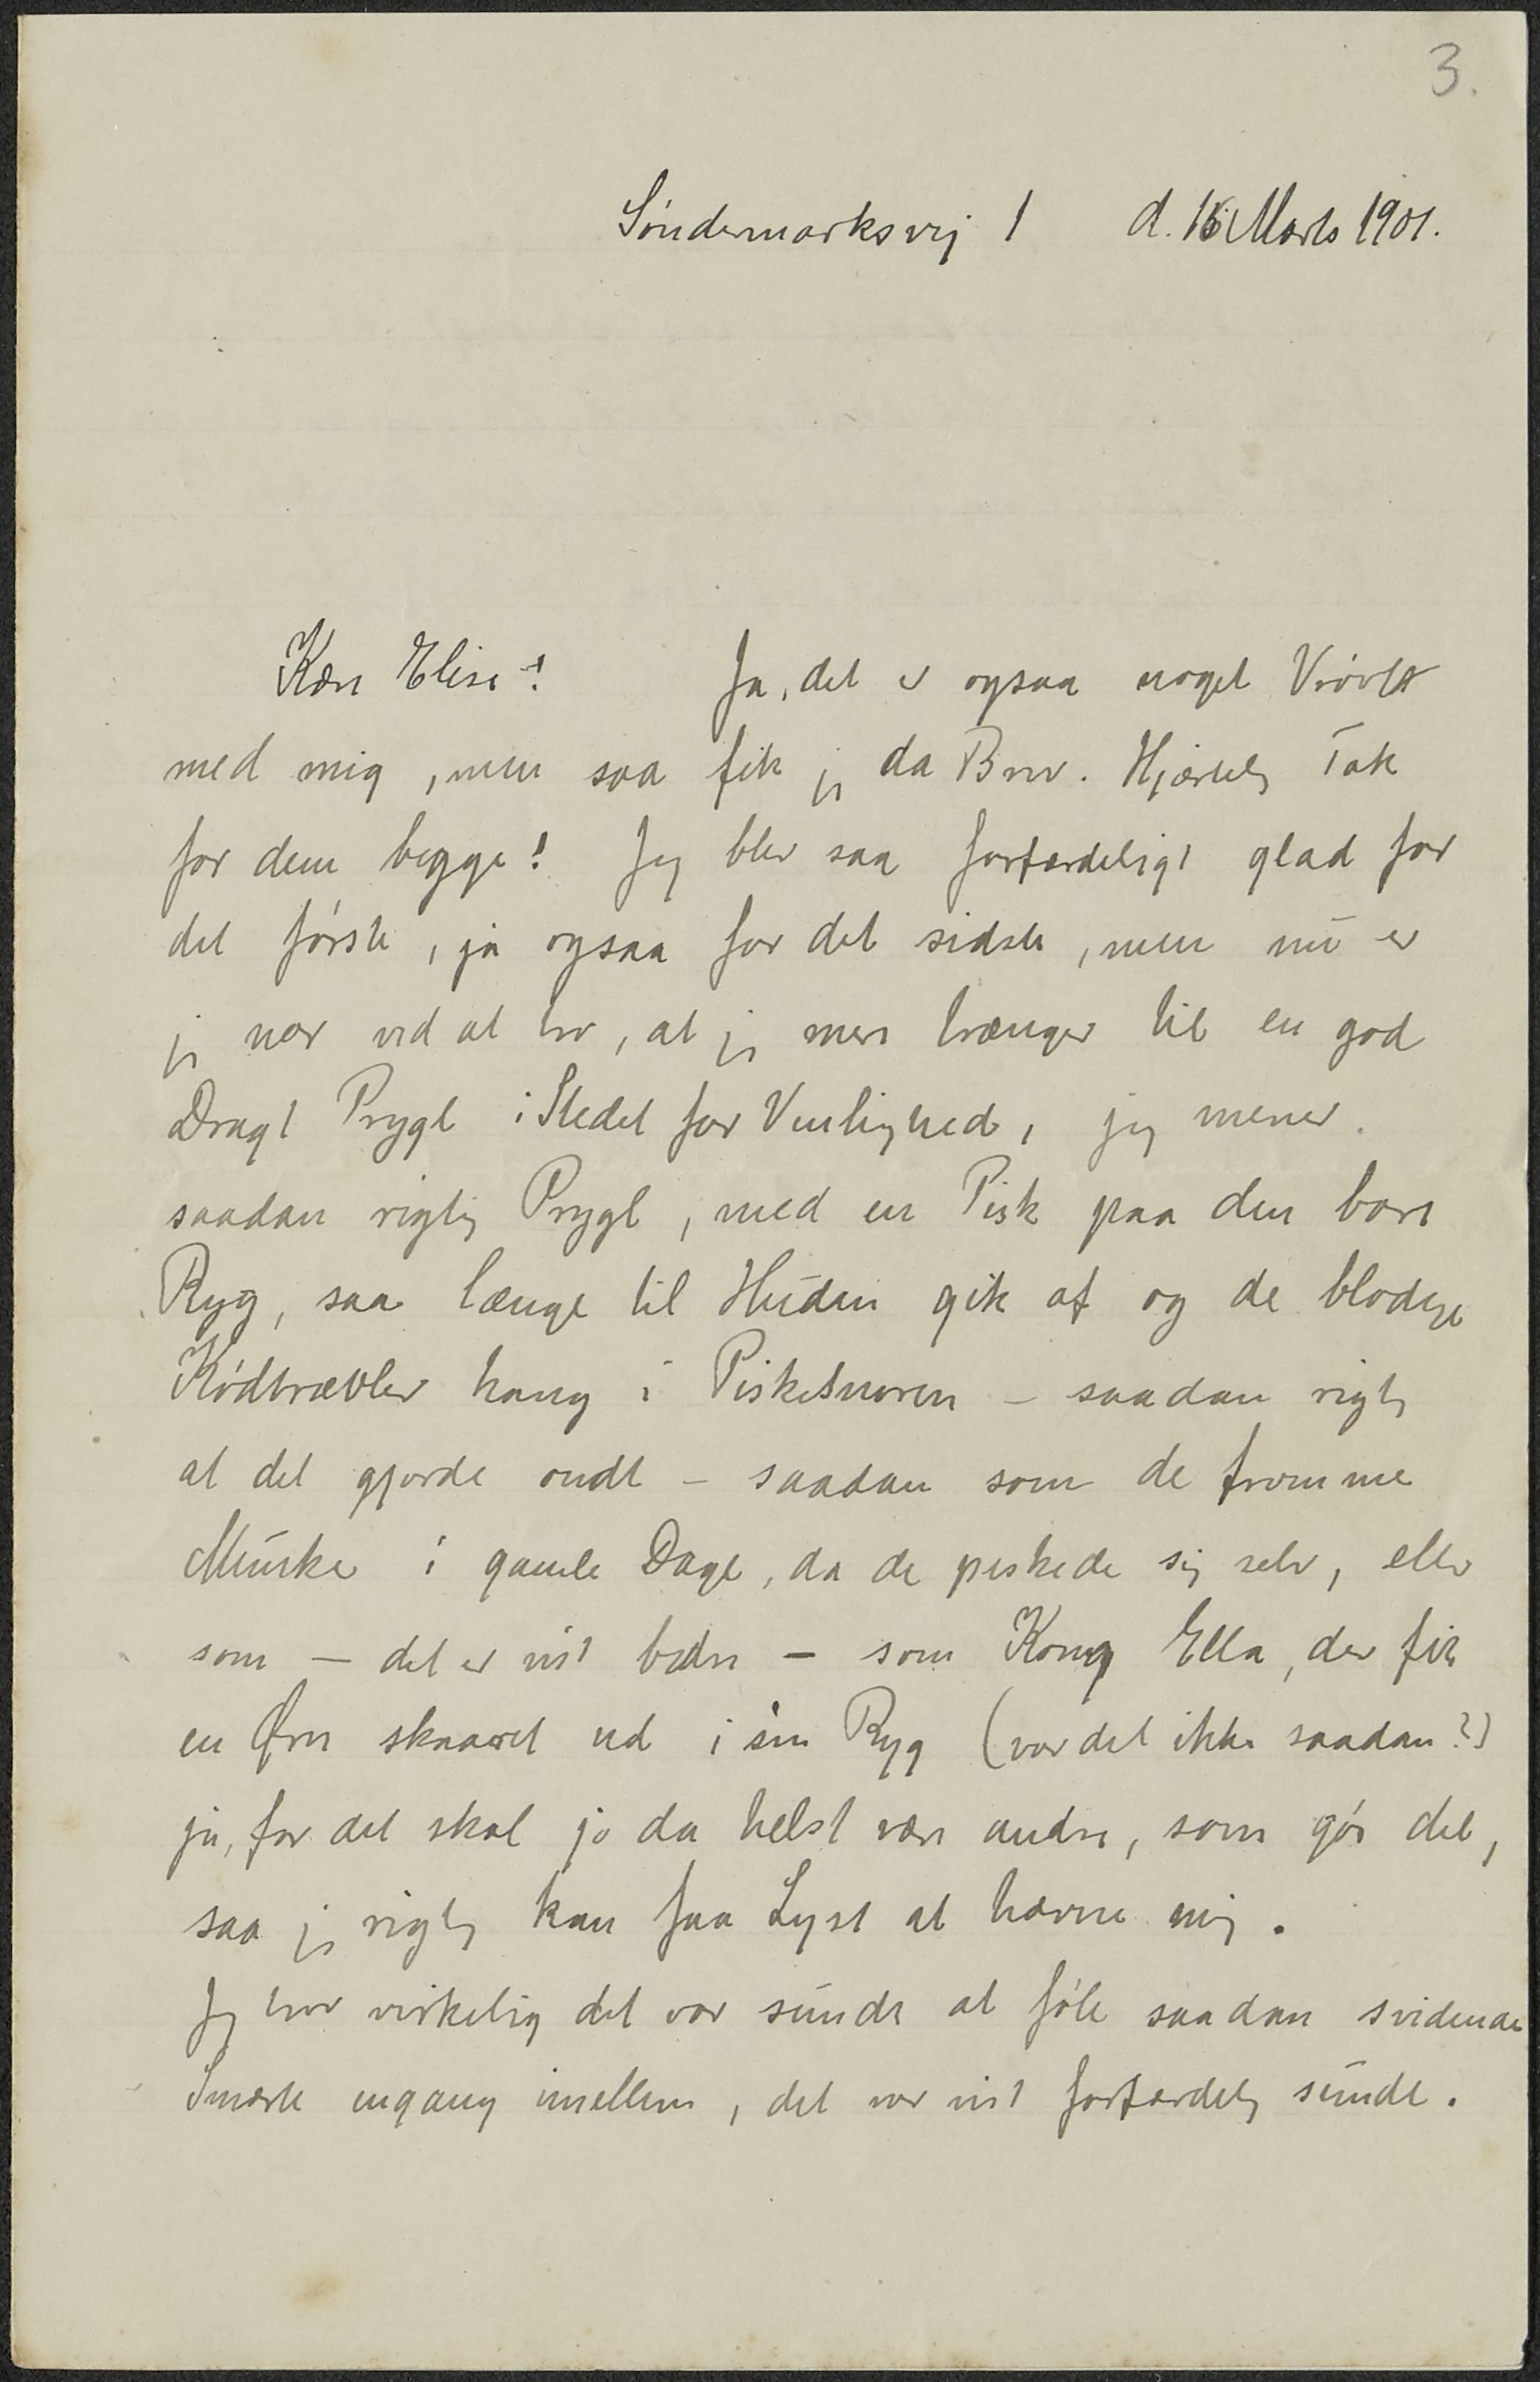 3.
Søndermarksvej 1 d. 16 Marts 1901.
Kære Elise! Ja, det er ogsaa noget Vrøvlt
med mig, men saa fik jeg da Brev. Hjærtelig Tak
for dem begge! Jeg blev saa forfærdeligt glad for
det første, ja ogsaa for det sidste, men nu er
jeg nær ved at tro, at jeg mere trænger til en god
Dragt Prygl i Stedet for Venlighed, jeg mener
saadan rigtig Prygl, med en Pisk paa den bare
Ryg, saa længe til Huden gik af og de blodige
Kødtrævler hang i Piskesnoren – saadan rigtig
at det gjorde ondt – saadan som de fromme
Munke i gamle Dage, da de piskede sig selv, eller
som – det er vist bedre – som Kong Ella, der fik
en Ørn skaaret ud i sin Ryg (var det ikke saadan?)
ja, for det skal jo da helst være andre, som gør det,
saa jeg rigtig kan faa Lyst at hævne mig.
Jeg tror virkelig det var sundt at føle saadan svidende
Smærte engang imellem, det var vist forfærdelig sundt.